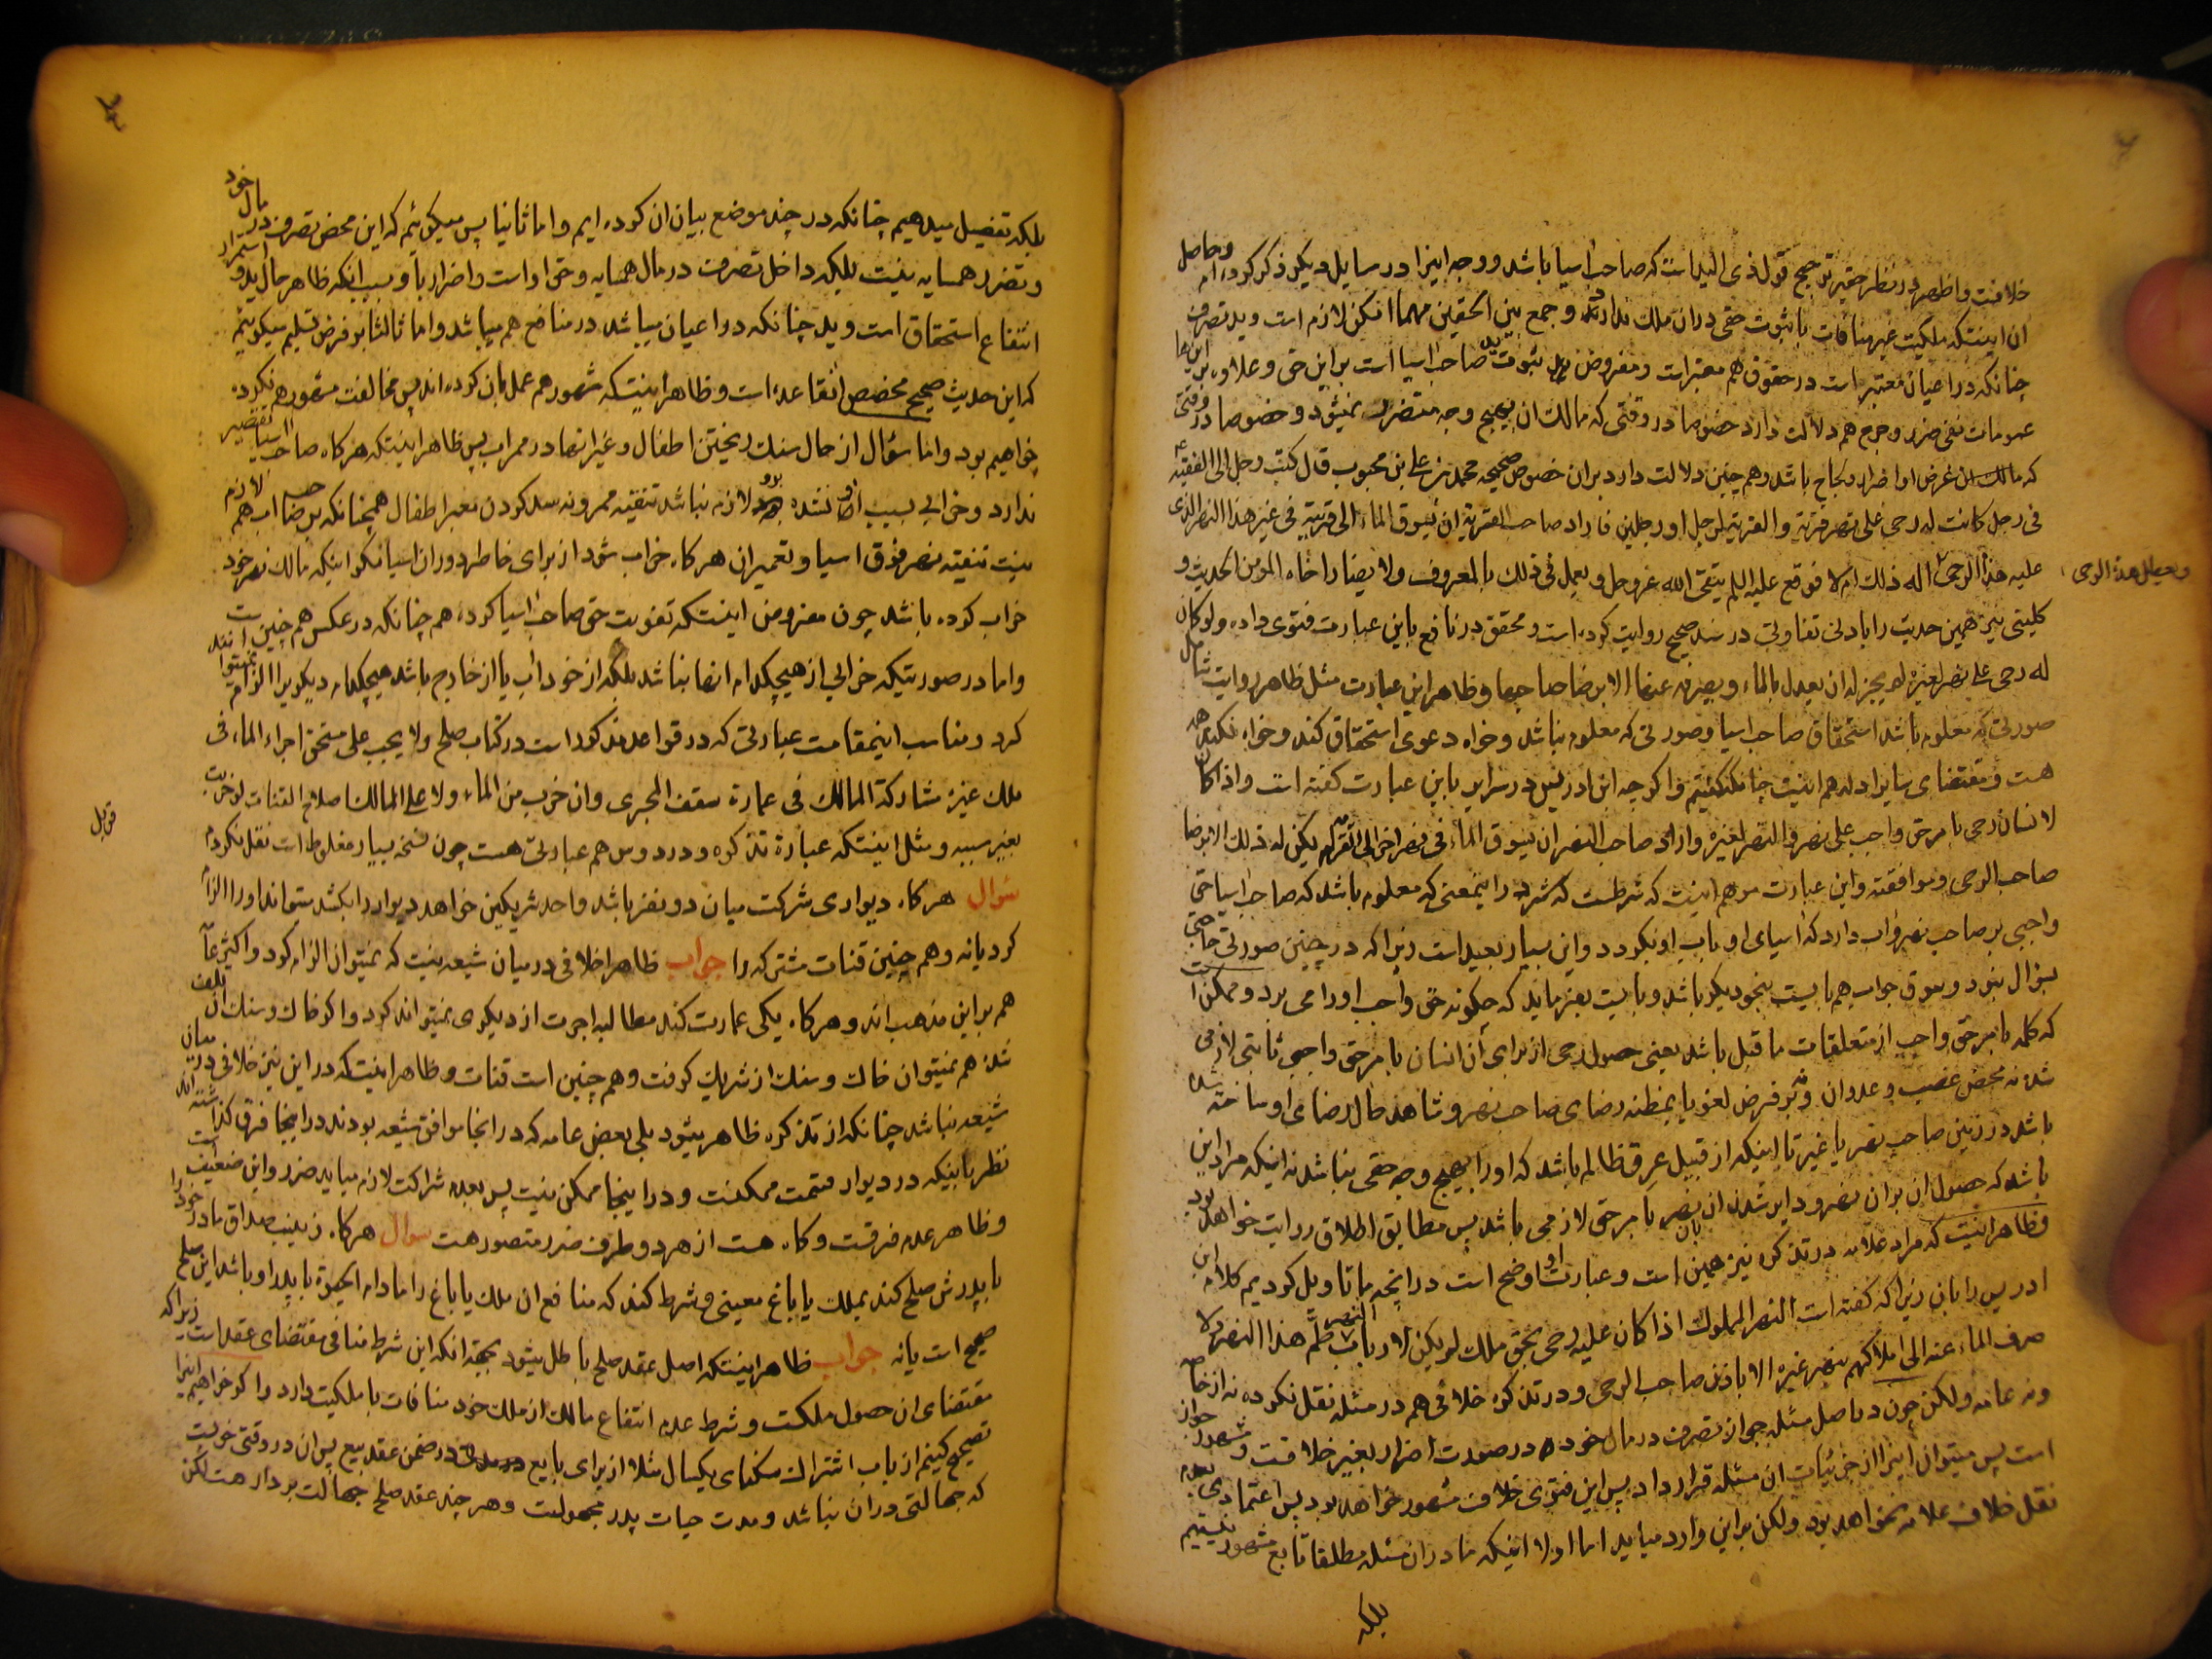 خلافست و اظهر در نظر حقیر ترجیح قول ذی الید است که صاحب اسیا باشد و وجه اینرا در رسایل دیگر ذکر کرده‌ام وحاصل
ان اینستکه ملکیت عین منافات با ثبوت حقی در ان ملک ندارد و جمع بین الحقین مهما امکن لازم است و ید تصرف
چنانکه در اعیان معتبر است در حقوق هم معتبر است و مفروض ثبوت ید صاحب اسیا است بر این حق و علاوه بر این‌ها
عمومات نفی ضرر و حرج هم دلالت دارد خصوصا در وقتی که مالک ان بهیچ وجه متضرر نمیشود و خصوصا در وقتی
که مالک ان غرض او اضرار و لجاج باشد و هم چنین دلالت دارد بر ان خصوص صحیحه محمد بن علی بن محبوب قال کتب رجل الی الفقیه ع
فی رجل کانت له رحی علی نهر قریة والقریة لرجل او رجلین فاراد صاحب القریة ان یسوق الماء الی قریته فی غیر هذا النهر الذی
علیه هذا الرحی اله ذلک ام لا فوقع علیه السلم یتقی الله عز وجل ویعمل فی ذلک بالمعروف ولا یضار اخاه المؤمن الحدیث و
ویعطل هذه الرحی
کلینی نیز همین حدیث را باندک تفاوتی در سند صحیح روایت کرده است و محقق در نافع باین عبارت فتوی داده ولو کان
له رحی علی نهر لغیره لم یجز له ان یعدل بالماء ویصرفه عنها الا برضا صاحبها و ظاهر این عبارت مثل ظاهر روایت شامل
صورتی که معلوم باشد استحقاق صاحب اسیا و صورتی که معلوم نباشد و خواه دعوی استحقاق کند و خواه نکند
هست و مقتضای سایر ادله هم اینست چنانکه گفتیم و اگر چه ابن ادریس در سرایر باین عبارت گفته است واذا کان
لانسان رحی بامر حق واجب علی نهر والنهر لغیره واراد صاحب النهر ان یسوق الماء فی نهر اخر الی القریة لم یکن له ذلک الا برضا
صاحب الرحی وموافقته و این عبارت موهم اینست که شرطست که شهرد را اینمعنی که معلوم باشد که صاحب اسیا حق
واجبی بر صاحب نهر و اب دارد که اسیای او باب او بگردد و این بسیار بعید است زیرا که در چنین صورتی حاجتی
بسؤال نبود و سوق جواب هم بایست بنحو دیگر باشد و بایست بفرماید که چگونه حق واجب او را می برد و ممکن است
که کلمه بامر حق واجب از متعلقات ما قبل باشد یعنی حصول رحی از برای ان انسان بامر حق واجبی ثابتی لازمی
شده نه محض غصب و عدوان و بر فرض لغو یا بمظنه رضای صاحب نهر و شاهد حال رضای او ساخته شده
باشد در زمین صاحب نهر یا غیر تا اینکه از قبیل عرق ظالم باشد که او را بهیچ وجه حقی نباشد نه اینکه مراد این
باشد که حصول ان بر ان نهر و دایر شدن ان بان نهر بامر حق لازمی باشد پس مطابق اطلاق روایت خواهد بود
و ظاهر اینست که مراد علامه در تذکره نیز همین است و عبارت او اوضح است در انچه ما تاویل کردیم کلام ابن
ادریس را بان زیرا که گفته است النهر المملوک اذا کان علیه رحی بحق ملک لم یکن لارباب النهر طم هذا النهر ولا
صرف الماء عنه الی املاکهم بنهر غیره الا باذن صاحب الرحی و در تذکره خلافی هم در مسئله نقل نکرده نه از خاصه
و نه عامه و لکن چون در اصل مسئله جواز تصرف در مال خود در صورت اضرار بغیر خلافست و مشهور جواز
است پس میتوان اینرا از جزئیات ان مسئله قرار داد پس این فتوی خلاف مشهور خواهد بود پس اعتمادی بعدم
نقل خلاف علامه نخواهد بود و لکن بر این وارد میاید اما اولا اینکه ما در ان مسئله مطلقا تابع مشهور نیستیم
بلکه
بلکه تفصیل میدهیم چنانکه در چند موضع بیان ان کرده ایم و اما ثانیا پس میگوئیم که این محض تصرف در مال خود
و تضرر همسایه نیست بلیکه داخل تصرف در مال همسایه و حق او است و اضرار باو بسبب انکه ظاهر حال ید و استمرار
انتفاع استحقاق است و ید چنانکه در اعیان میباشد در منافع هم میباشد و اما ثالثا بر فرض تسلیم میگوئیم
که این حدیث صحیح مخصص انقاعده است و ظاهر اینست که مشهور هم عمل بان کرده اند پس مخالفت مشهور هم نکرده
خواهیم بود و اما سؤال از حال سنک ریختن اطفال و غیر انها در ممر اب پس ظاهر اینستکه هر کاه صاحب اسیا تقصیر
ندارد و خرابی بسبب او نشده بر او لازم نباشد تنقیه ممر و نه سد کردن معبر اطفال همچنانکه بر صاحب اب هم لازم
نیست تنقیه نهر فوق اسیا و تعمیر ان هر کاه خراب شود از برای خاطر دوران اسیا مگر اینکه مالک نهر خود
خراب کرده باشد چون مفروض اینستکه تفویت حق صاحب اسیا کرده هم چنانکه در عکس هم چنین است
و اما در صورتیکه خرابی از هیچکدام انها نباشد بلکه از خود اب یا از خارج باشد هیچکدام دیگریرا الزام نمیتوانند
کرد و مناسب اینمقام است عبارتی که در قواعد مذکور است در کتاب صلح ولا یجب علی مستحق اجراء الماء فی
ملک غیره مشارکة المالک فی عمارة سقف المجری وان خرب من الماء ولا علی المالک اصلاح القناة لو خربت
بغیر سببه و مثل اینستکه عبارة تذکره و در دروس هم عبارتی هست چون نسخه بسیار مغلوط است نقل نکردم
سؤال هر کاه دیواری شرکت میان دو نفر باشد و احد شریکین خواهد دیوار را بکشد میتواند او را الزام
کرد یا نه و هم چنین قنات مشترکه را جواب ظاهرا خلافی در میان شیعه نیست که نمیتوان الزام کرد و اکثر عامه
هم بر این مذهب اند و هر کاه یکی عمارت کند مطالبه اجرت از دیگری نمیتواند کرد و اگر خاک و سنک ان تلف
شده هم نمیتوان خاک و سنک از شریک گرفت و هم چنین است قنات و ظاهر اینست که در این نیز خلافی در میان
شیعه نباشد چنانکه از تذکره ظاهر میشود بلی بعض عامه که در انجا موافق شیعه بودند در اینجا فرق گذاشته اند
نظر باینکه در دیوار قسمت ممکنست و در اینجا ممکن نیست پس بعدم شراکت لازم میاید ضرر و این ضعیف است
و ظاهر عدم فرقست و کاه هست از هر دو طرف ضرر متصور هست سؤال هر کاه زینب صداق مادر خود را
با پدرش صلح کند بملک یا باغ معینی و شرط کند که منافع ان ملک یا باغ را مادام الحیوة با پدر او باشد این صلح
صحیح است یا نه جواب ظاهر اینستکه اصل عقد صلح باطل میشود بجهة انکه این شرط منافی مقتضای عقد است زیرا که
مقتضای ان حصول ملکست و شرط عدم انتفاع مالک از ملک خود منافات با ملکیت دارد و اگر خواهیم اینرا
تصحیح کنیم از باب اشتراک سکنای یکسال مثلا از برای بایع در ضمن عقد بیع پس ان در وقتی خوبست
که جهالتی در ان نباشد و مدت حیات پدر مجهولست و هر چند عقد صلح جهالت بردار هست لکن